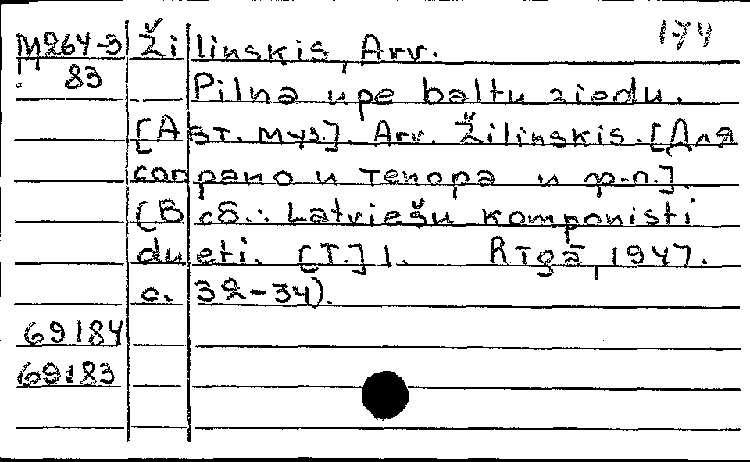 174
M264-3 Žilinskis, Arv.
83 Pilna upe baltu ziedu.
[Авт. муз.]. Arv. Žilinskis. [Для
сопрано и тенора и ф.-п.].
(В сб.: Latviešu komponisti
dueti. [T.] 1. Rīgā, 1947.
с. 32-34).
69184
69183